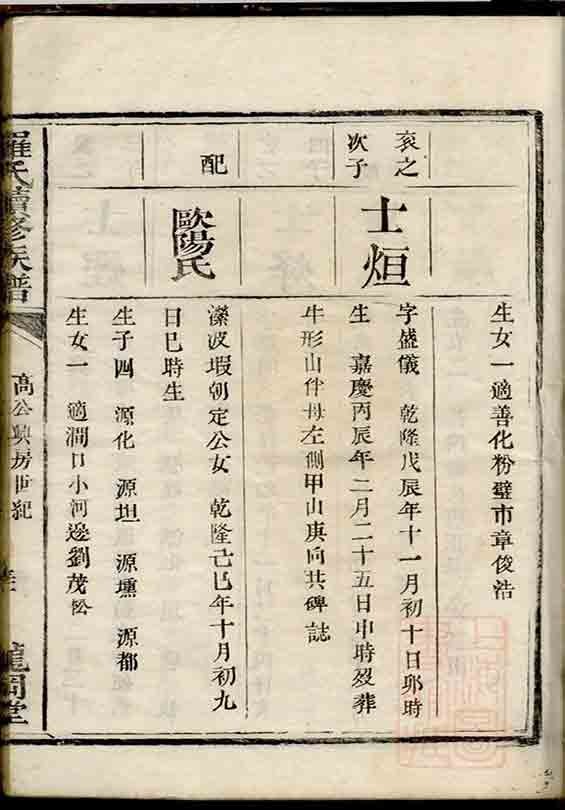 生女一適善化粉壁市章俊浩
袞之
次子
士烜
字盛儀 乾隆戊辰年十一月初十日卯時
生 嘉慶丙辰年二月二十五日申時歿葬
牛形山伴母左側甲山庚向共碑誌
配
歐陽氏
濴波塅朝定公女 乾隆己巳年十月初九
日巳時生
生子四 源化 源坦 源壎 源都
生女一 適澗口小河邊劉茂松
羅氏續修族譜
高公興房世紀